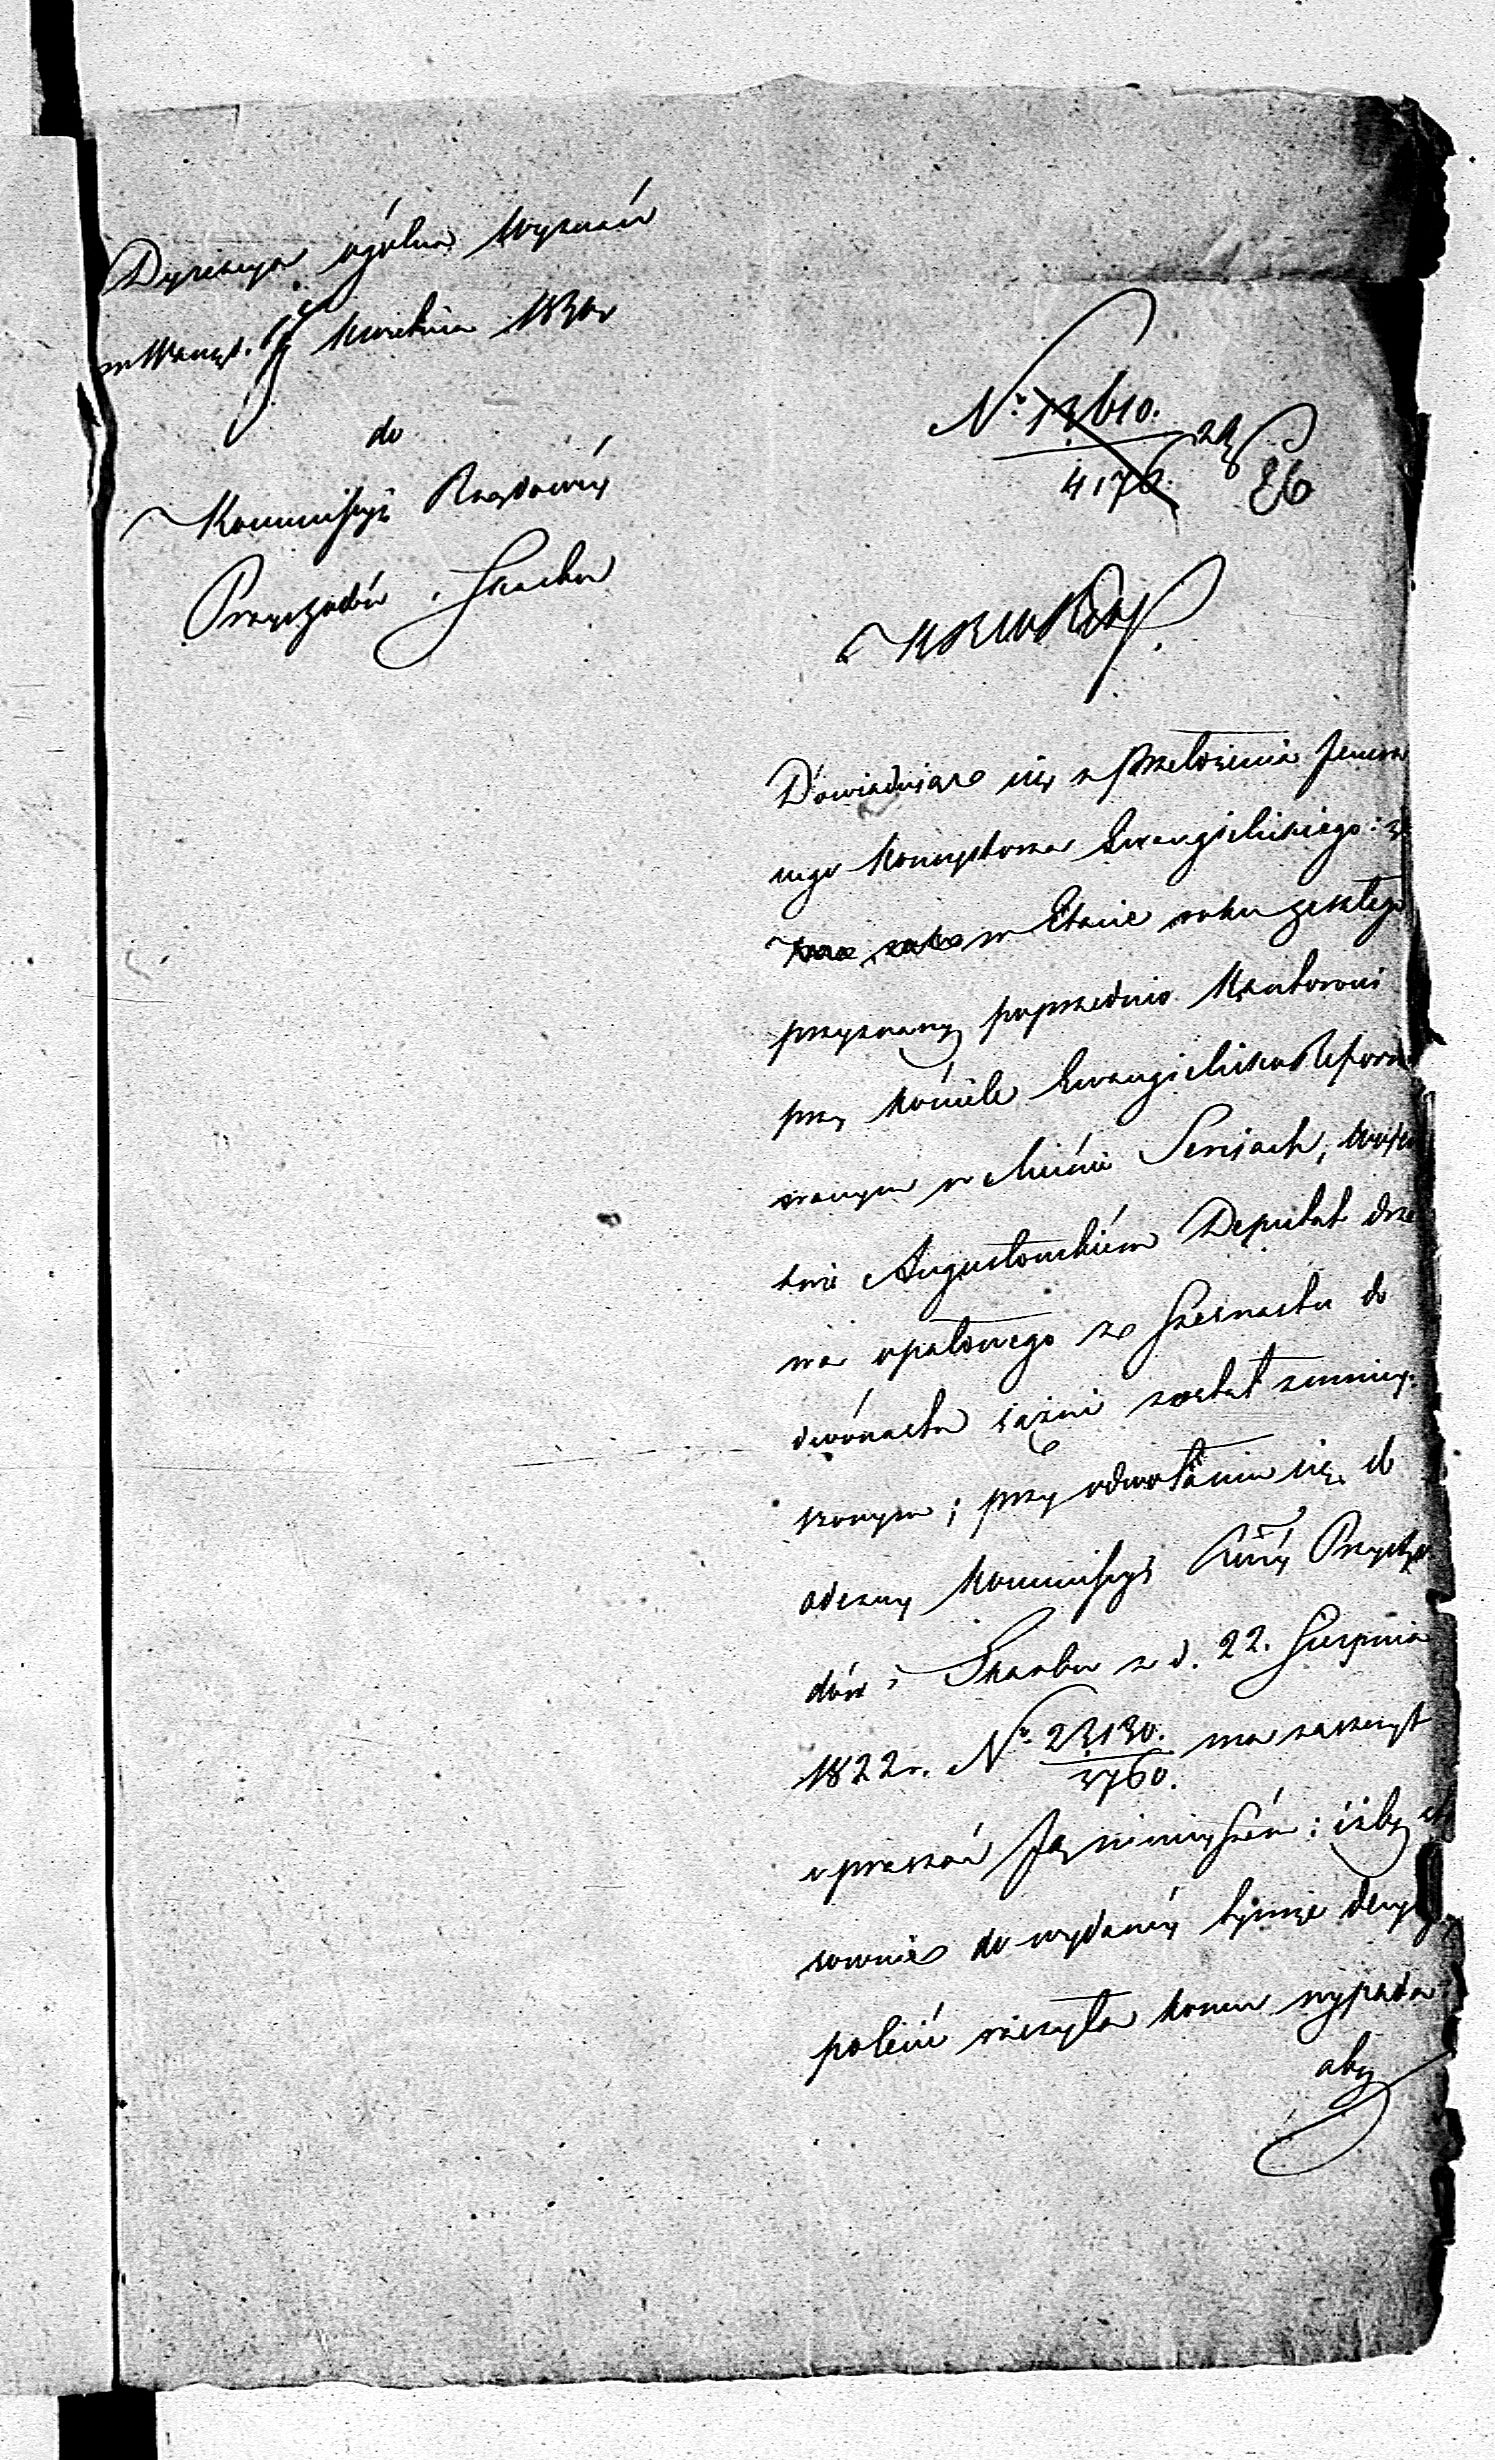 Dyrekcya ogólna Wyznań
w Warsz. Kwietnia 1830
do
Kommissyi Rządowéy
Przychodów i Skarbu
N° 13610.
4176.
Dowiedziawszy się z przełożenia Jeneral
nego Konsystorza Ewangielickiego: że
w Etacie roku zeszłego
przyznany poprzednio Kantorowi
przy kościele Ewangielicko Reformo
wanym w mieście Sereiach, Wojewódz
twie Augustowskiém Deputat drze
wa opałowego z szesnastu do
dwónastu sążni został zmniey.
szonym; przy odwołaniu się do
odezwy Kommissyi Rząd. Przycho
dów i Skarbu z d. 22. Sierpnia
1822 r. N° 23130.
3760. ma zaszczyt
upraszać Jey ninieyszém: iżby sto
sownie do wydaney tymże decyzyi
polecić raczyła komu wypada
aby